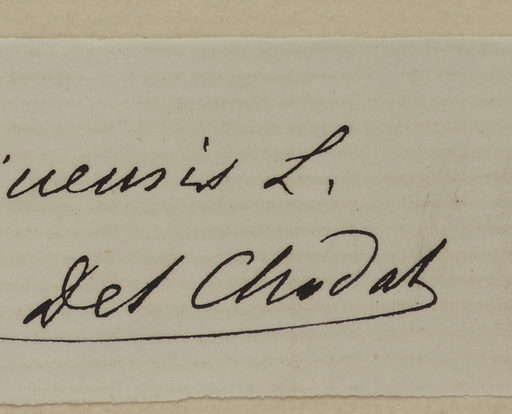 inensis L.
Det Chodat